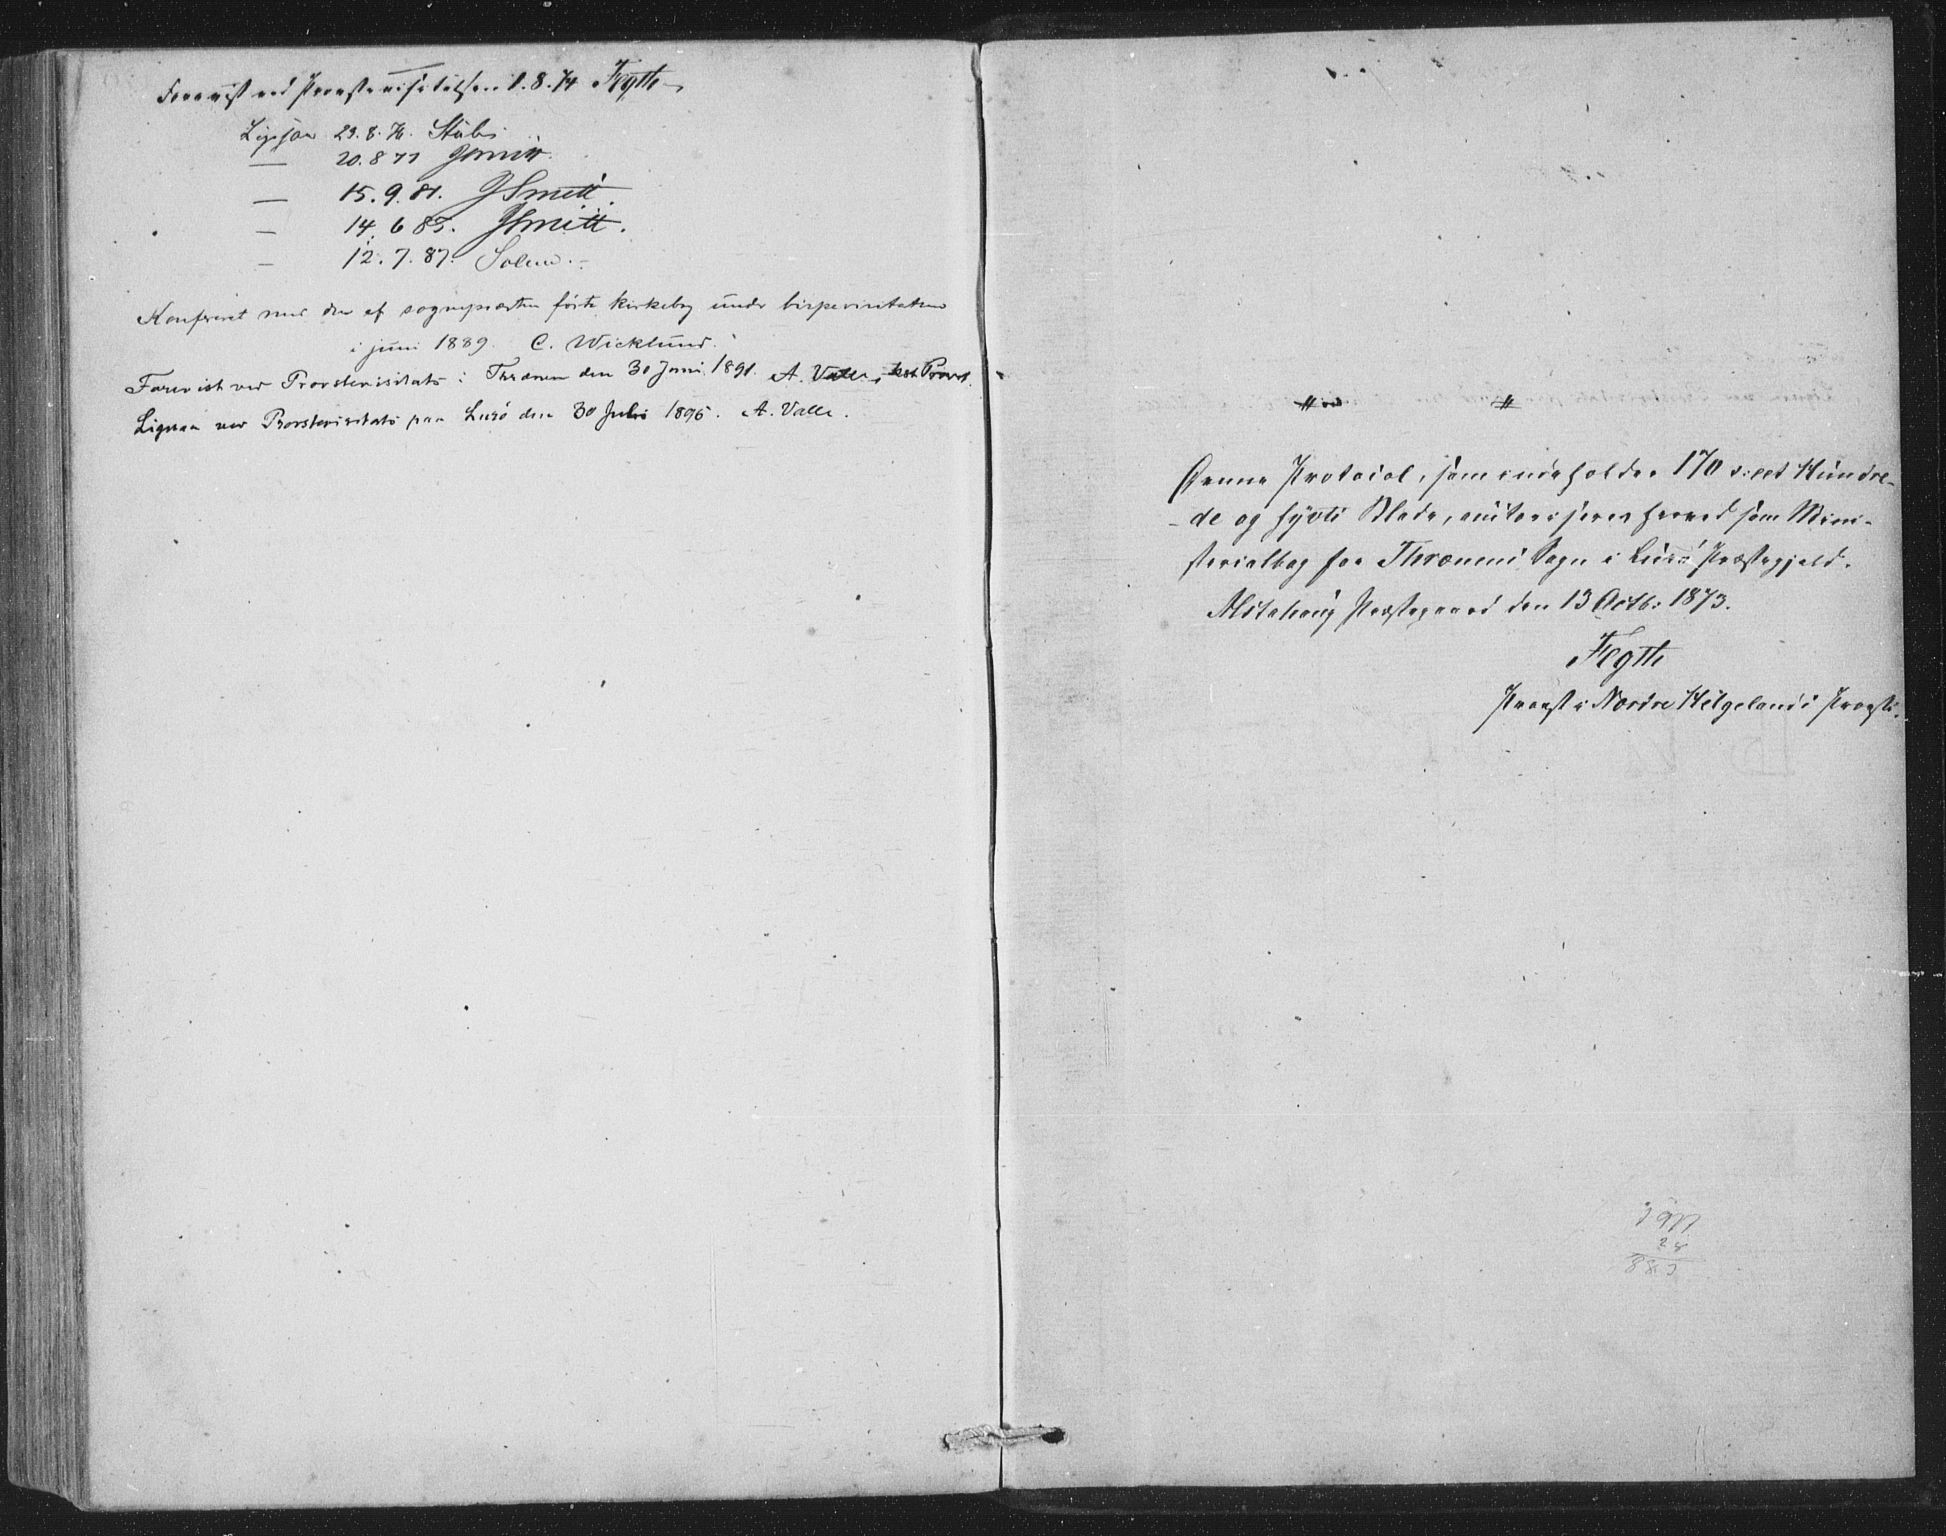 Forevist ved Provstevisitatsen 1.8.74 Fegth
Ligesaa 29.8.76. Stub
— 20.8 77 JSmitt
— 15.9.81. JSmitt.
— 14.6 85. JSmitt.
— 12.7.87. Solem.
Konfereret med den af sognepresten førte kirkebog under bispevisitatsen
i juni 1889. C. Wicklund.
Forevist ved Provstevisitats i Thrænen den 30 Juni 1891. A. Valle, kst Provst.
Ligesaa ved Provstevisitats paa Lurø den 30 Juli 1895. A. Valle.
Denne Protocol, som indeholder 170 s: eet Hundre-
-de og syvti Blade, autoriseres herved som Mini-
sterialbog for Thrænens Sogn i Lurø Præstegjeld.
Alstahoug Præstegaard den 13 Octb: 1873.
Fegth
Provst i Nordre Helgelands Provsti.